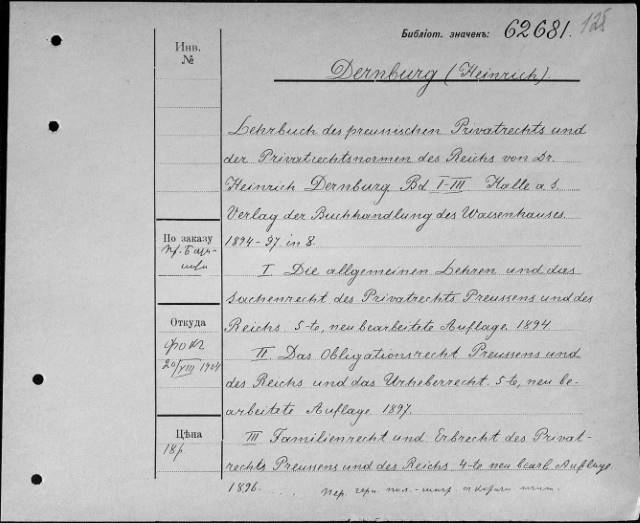 Библіот. значекъ: 62681. 125
Инв.
№
Dernburg (Heinrich)
Lehrbuch des preussischen Privatrechts und
der Privatrechtsnormen des Reichs von Dr.
Heinrich Dernburg Bd I-III Halle a. S.
Verlag der Buchhandlung des Waisenhauses.
1894-97. in 8.
По заказу
I Die allgemeinen Lehren und das
Sachenrecht des Privatrechts Preussens und des
Reichs. 5-te, neu bearbeitete Auflage. 1894.
Откуда
фокъ
20/VIII 1904
II. Das Obligationsrecht Preussens und
des Reichs und das Urheberrecht. 5-te, neu be-
arbeitete Auflage 1897.
Цѣна
18р
III Familienrecht und Erbrecht des Privat-
rechts Preussens und des Reichs 4-te neu bearb. Auflage
1896.